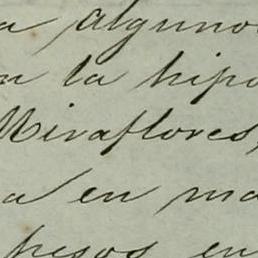 a alguno
a la hipo
Miraflores,
a en ma
pesos en